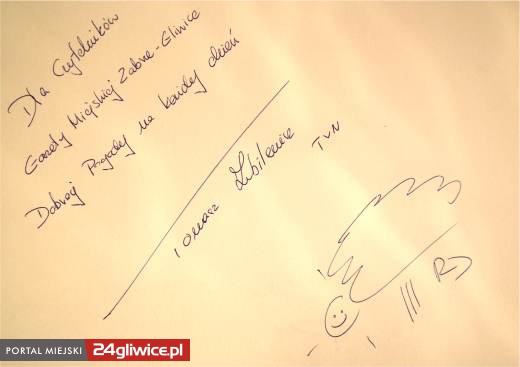 Dla Czytelników
Gazety Miejskiej Zabrze-Gliwice
Dobrej Pogody na każdy dzień
Tomasz Zubilewicz TVN
PORTAL MIEJSKI 24gliwice.pl